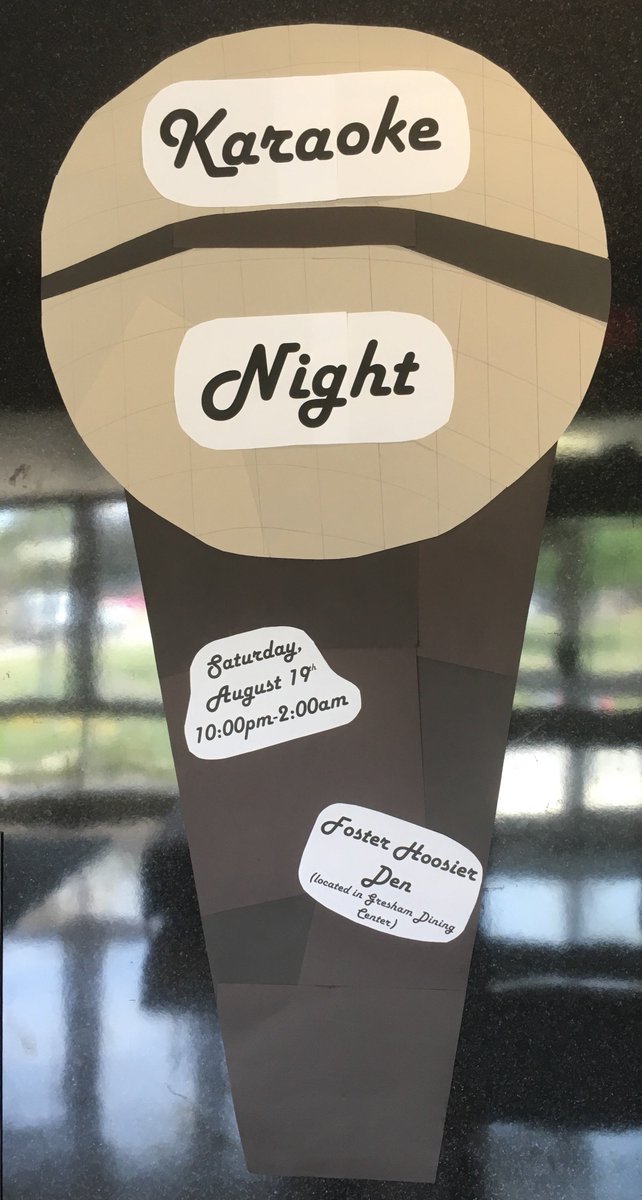 Karaoke
Night
Saturday,
August 19th
10:00pm-2:00am
Foster Hoosier
Den
(located in Gresham Dining
Center)